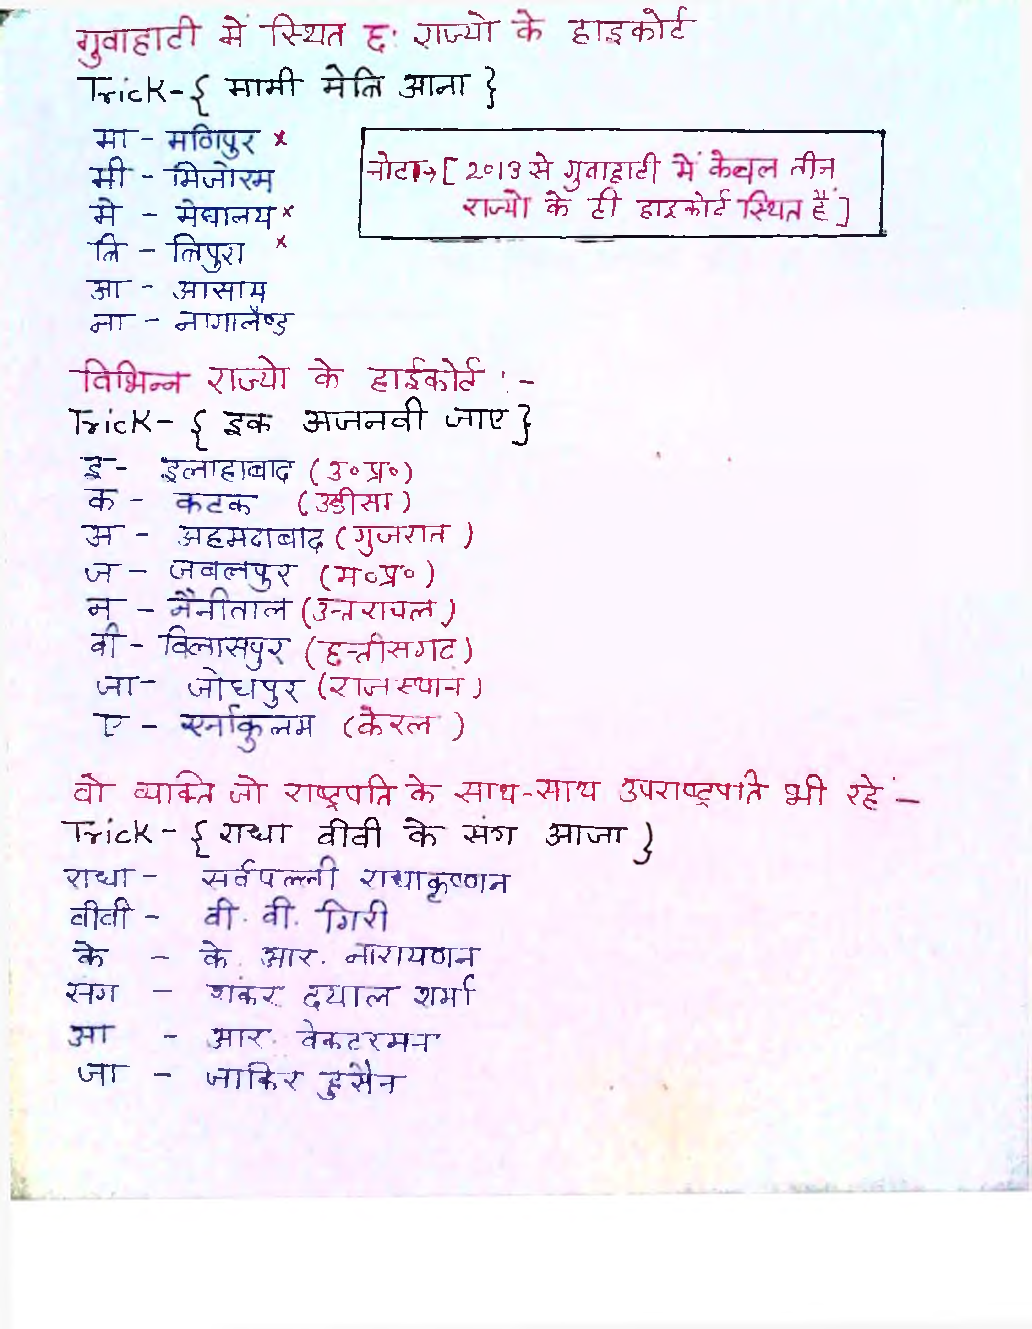 गुवाहाटी में स्थित छः राज्यो के हाइकोर्ट
Trick-{ मामी मेत्रि आना }
मा - मणिपुर x
मी - मिजोरम
मे - मेघालय x
त्रि - त्रिपुरा x
आ - आसाम
ना - नागालैण्ड
नोटः→[ 2013 से गुवाहाटी में केवल तीन
राज्यो के ही हाइकोर्ट स्थित हैं ]
विभिन्न राज्यो के हाईकोर्ट :-
Trick- { इक अजनवी जाए }
इ - इलाहाबाद (उ०प्र०)
क - कटक (उडीसा)
अ - अहमदाबाद (गुजरात)
ज - जबलपुर (म०प्र०)
न - नैनीताल (उत्तराचल)
वी - विलासपुर (छत्तीसगढ)
जा - जोधपुर (राजस्थान)
ए - एर्नाकुलम (केरल)
वो व्यक्ति जो राष्ट्रपति के साथ-साथ उपराष्ट्रपति भी रहे -
Trick - { राधा वीवी के संग आजा }
राधा - सर्वपल्ली राधाकृष्णन
वीवी - वी. वी. गिरी
के - के. आर. नारायणन
संग - शंकर दयाल शर्मा
आ - आर. वेकटरमन
जा - जाकिर हुसैन